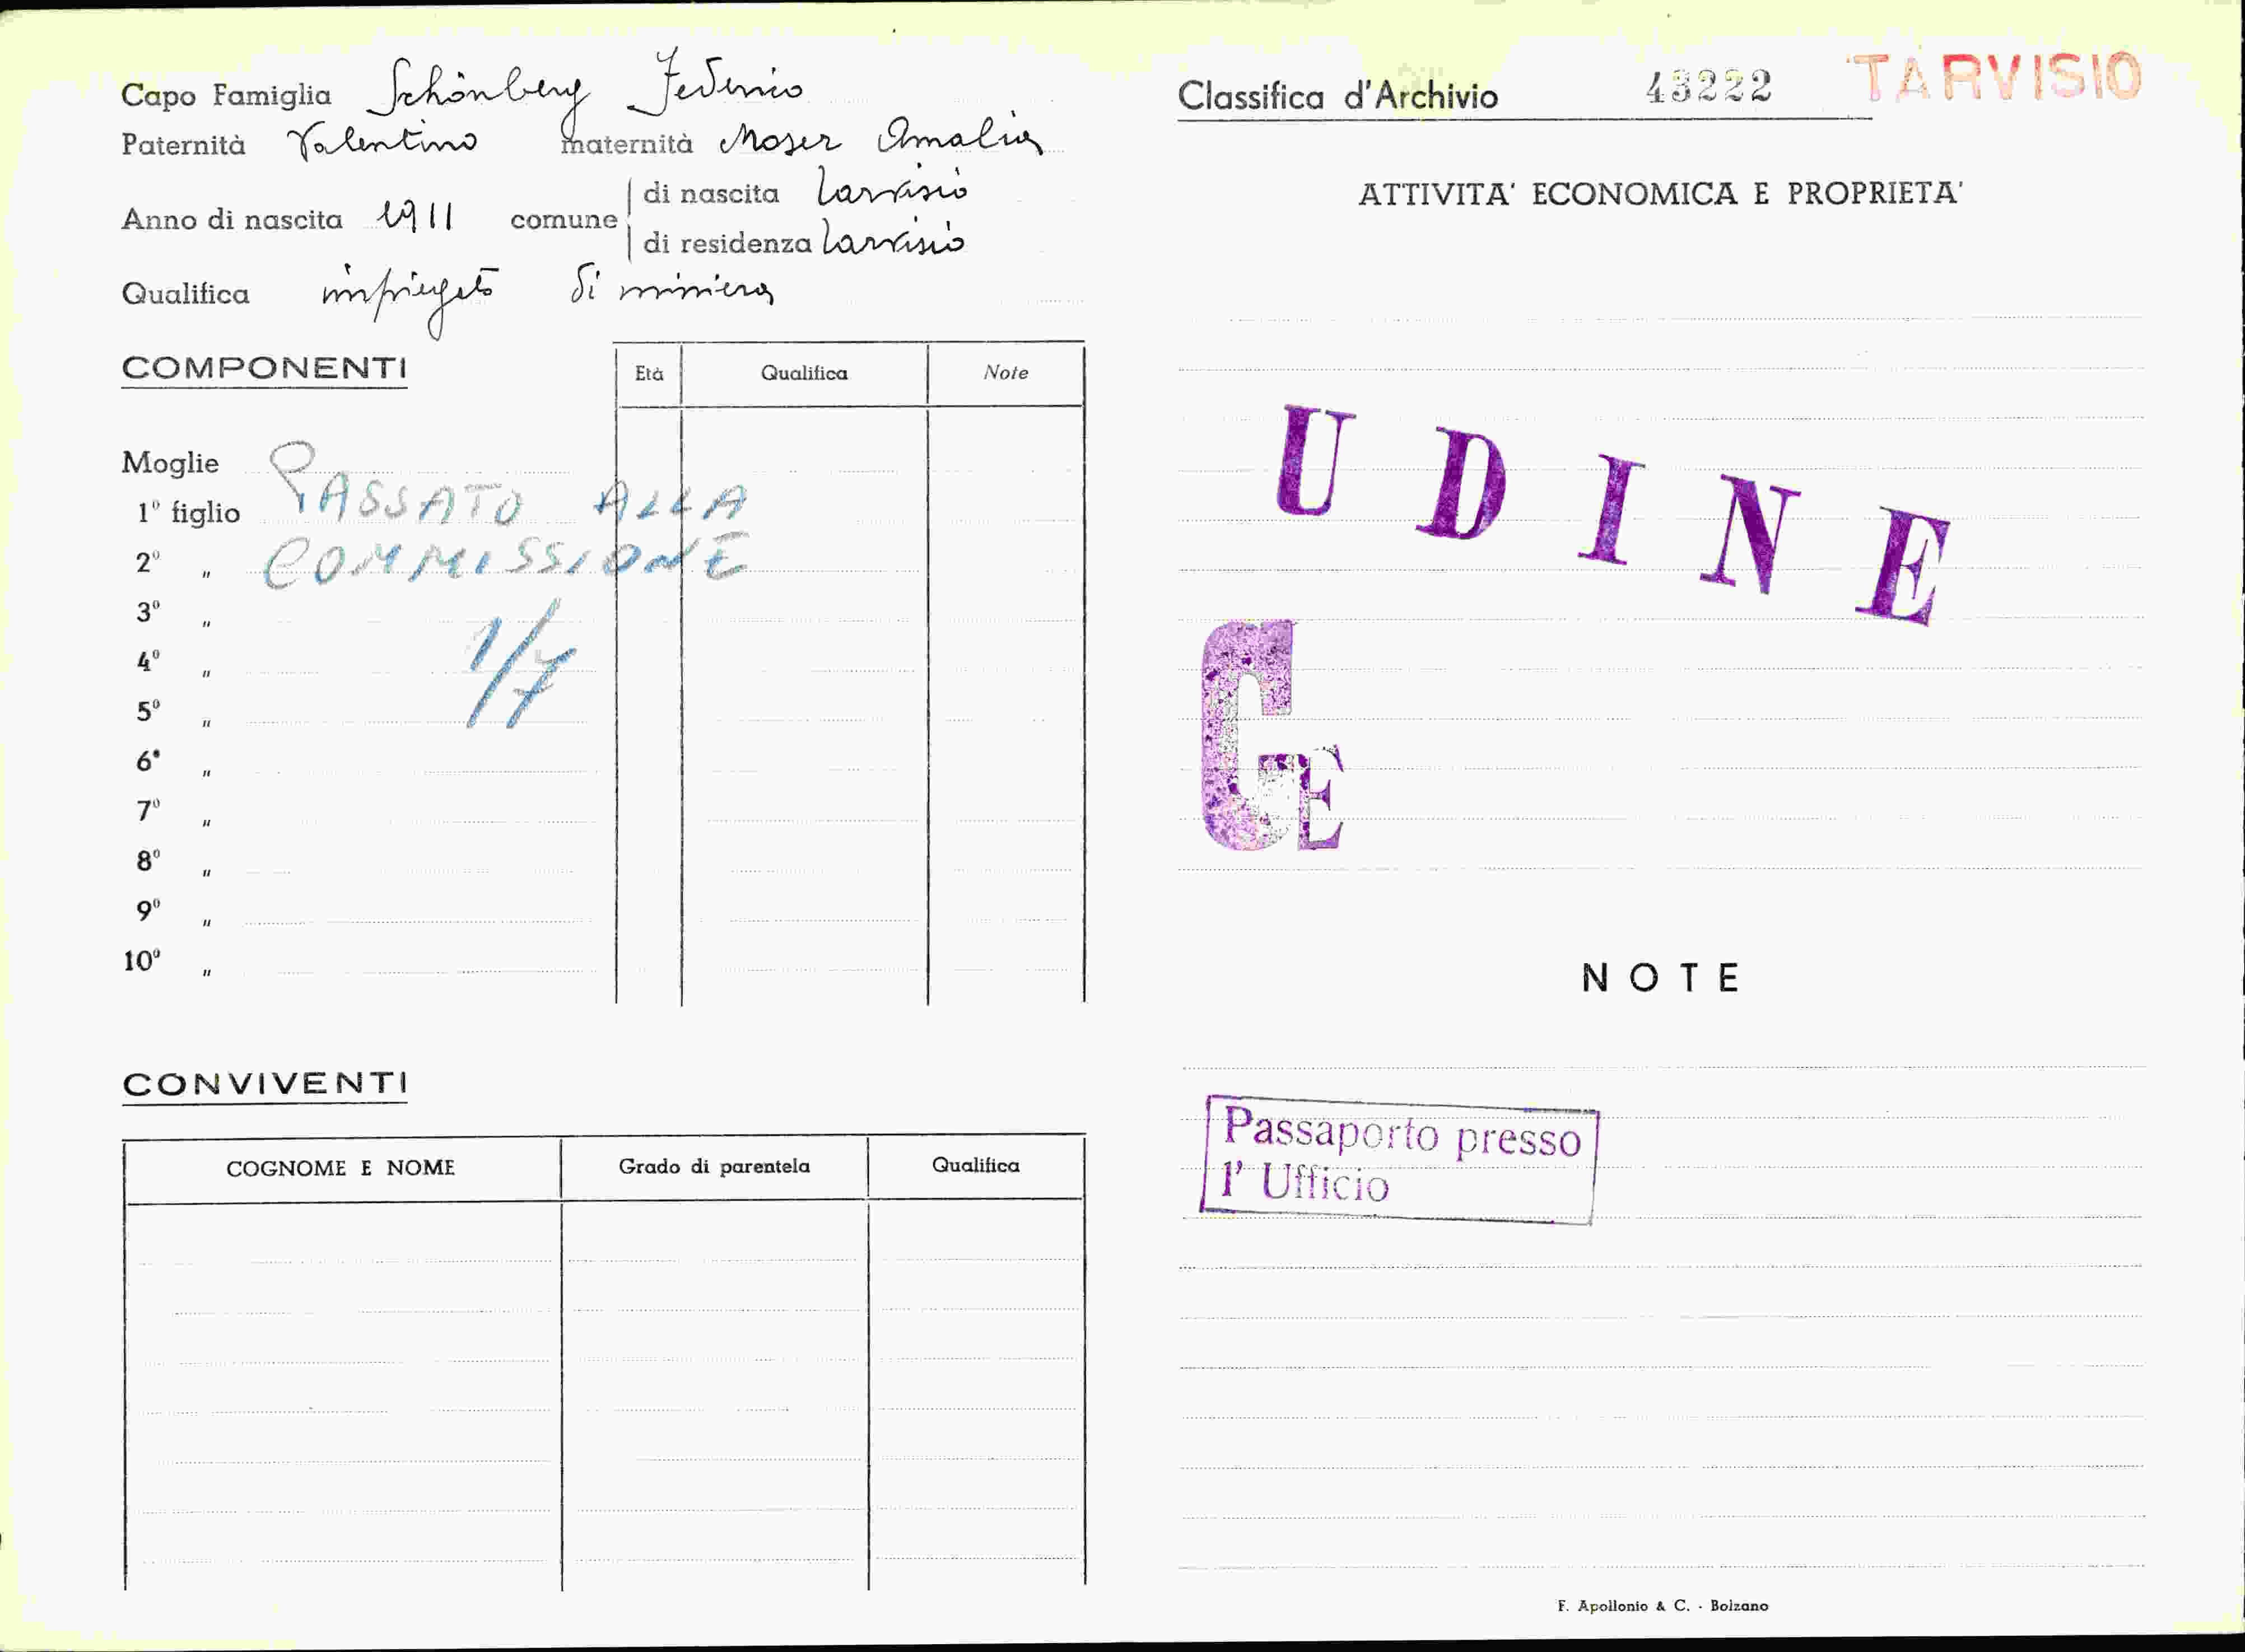 Capo Famiglia Schönberg Federico
Paternità Valentino maternità Moser Amalia
Anno di nascita 1911 comune di nascita Tarvisio
di residenza Tarvisio
Qualifica impiegato di miniera
COMPONENTI
Età Qualifica Note
Moglie
1º figlio
2º "
3º "
4º "
5º "
6º "
7º "
8º "
9º "
10º "
PASSATO ALLA
COMMISSIONE
1/7
CONVIVENTI
COGNOME E NOME Grado di parentela Qualifica
Classifica d'Archivio 43222 TARVISIO
ATTIVITA' ECONOMICA E PROPRIETA'
UDINE
G E
NOTE
Passaporto presso
l' Ufficio
F. Apollonio & C. - Bolzano